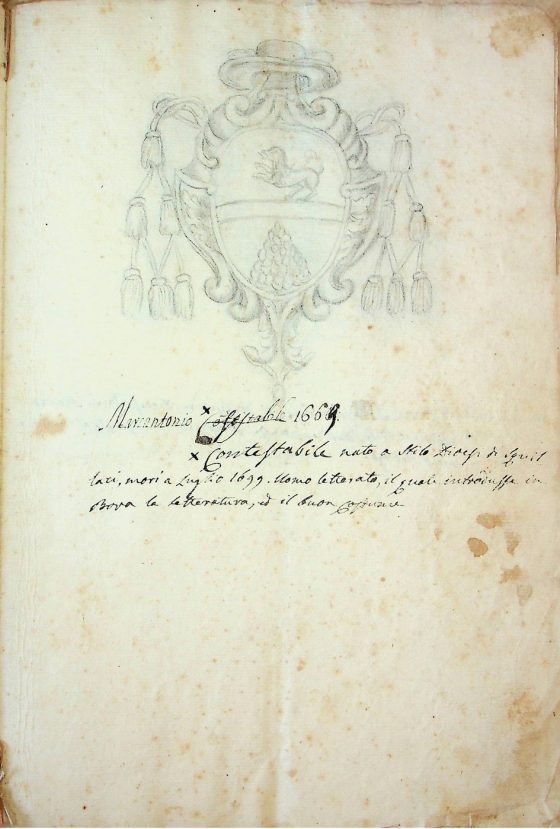 Marcantonio × Cosestabile 1669.
× Contestabile nato a Stilo Diocesi di Squil
laci, morì a Luglio 1699. Uomo letterato, il quale introdusse in
Bova la letteratura, ed il buon costume